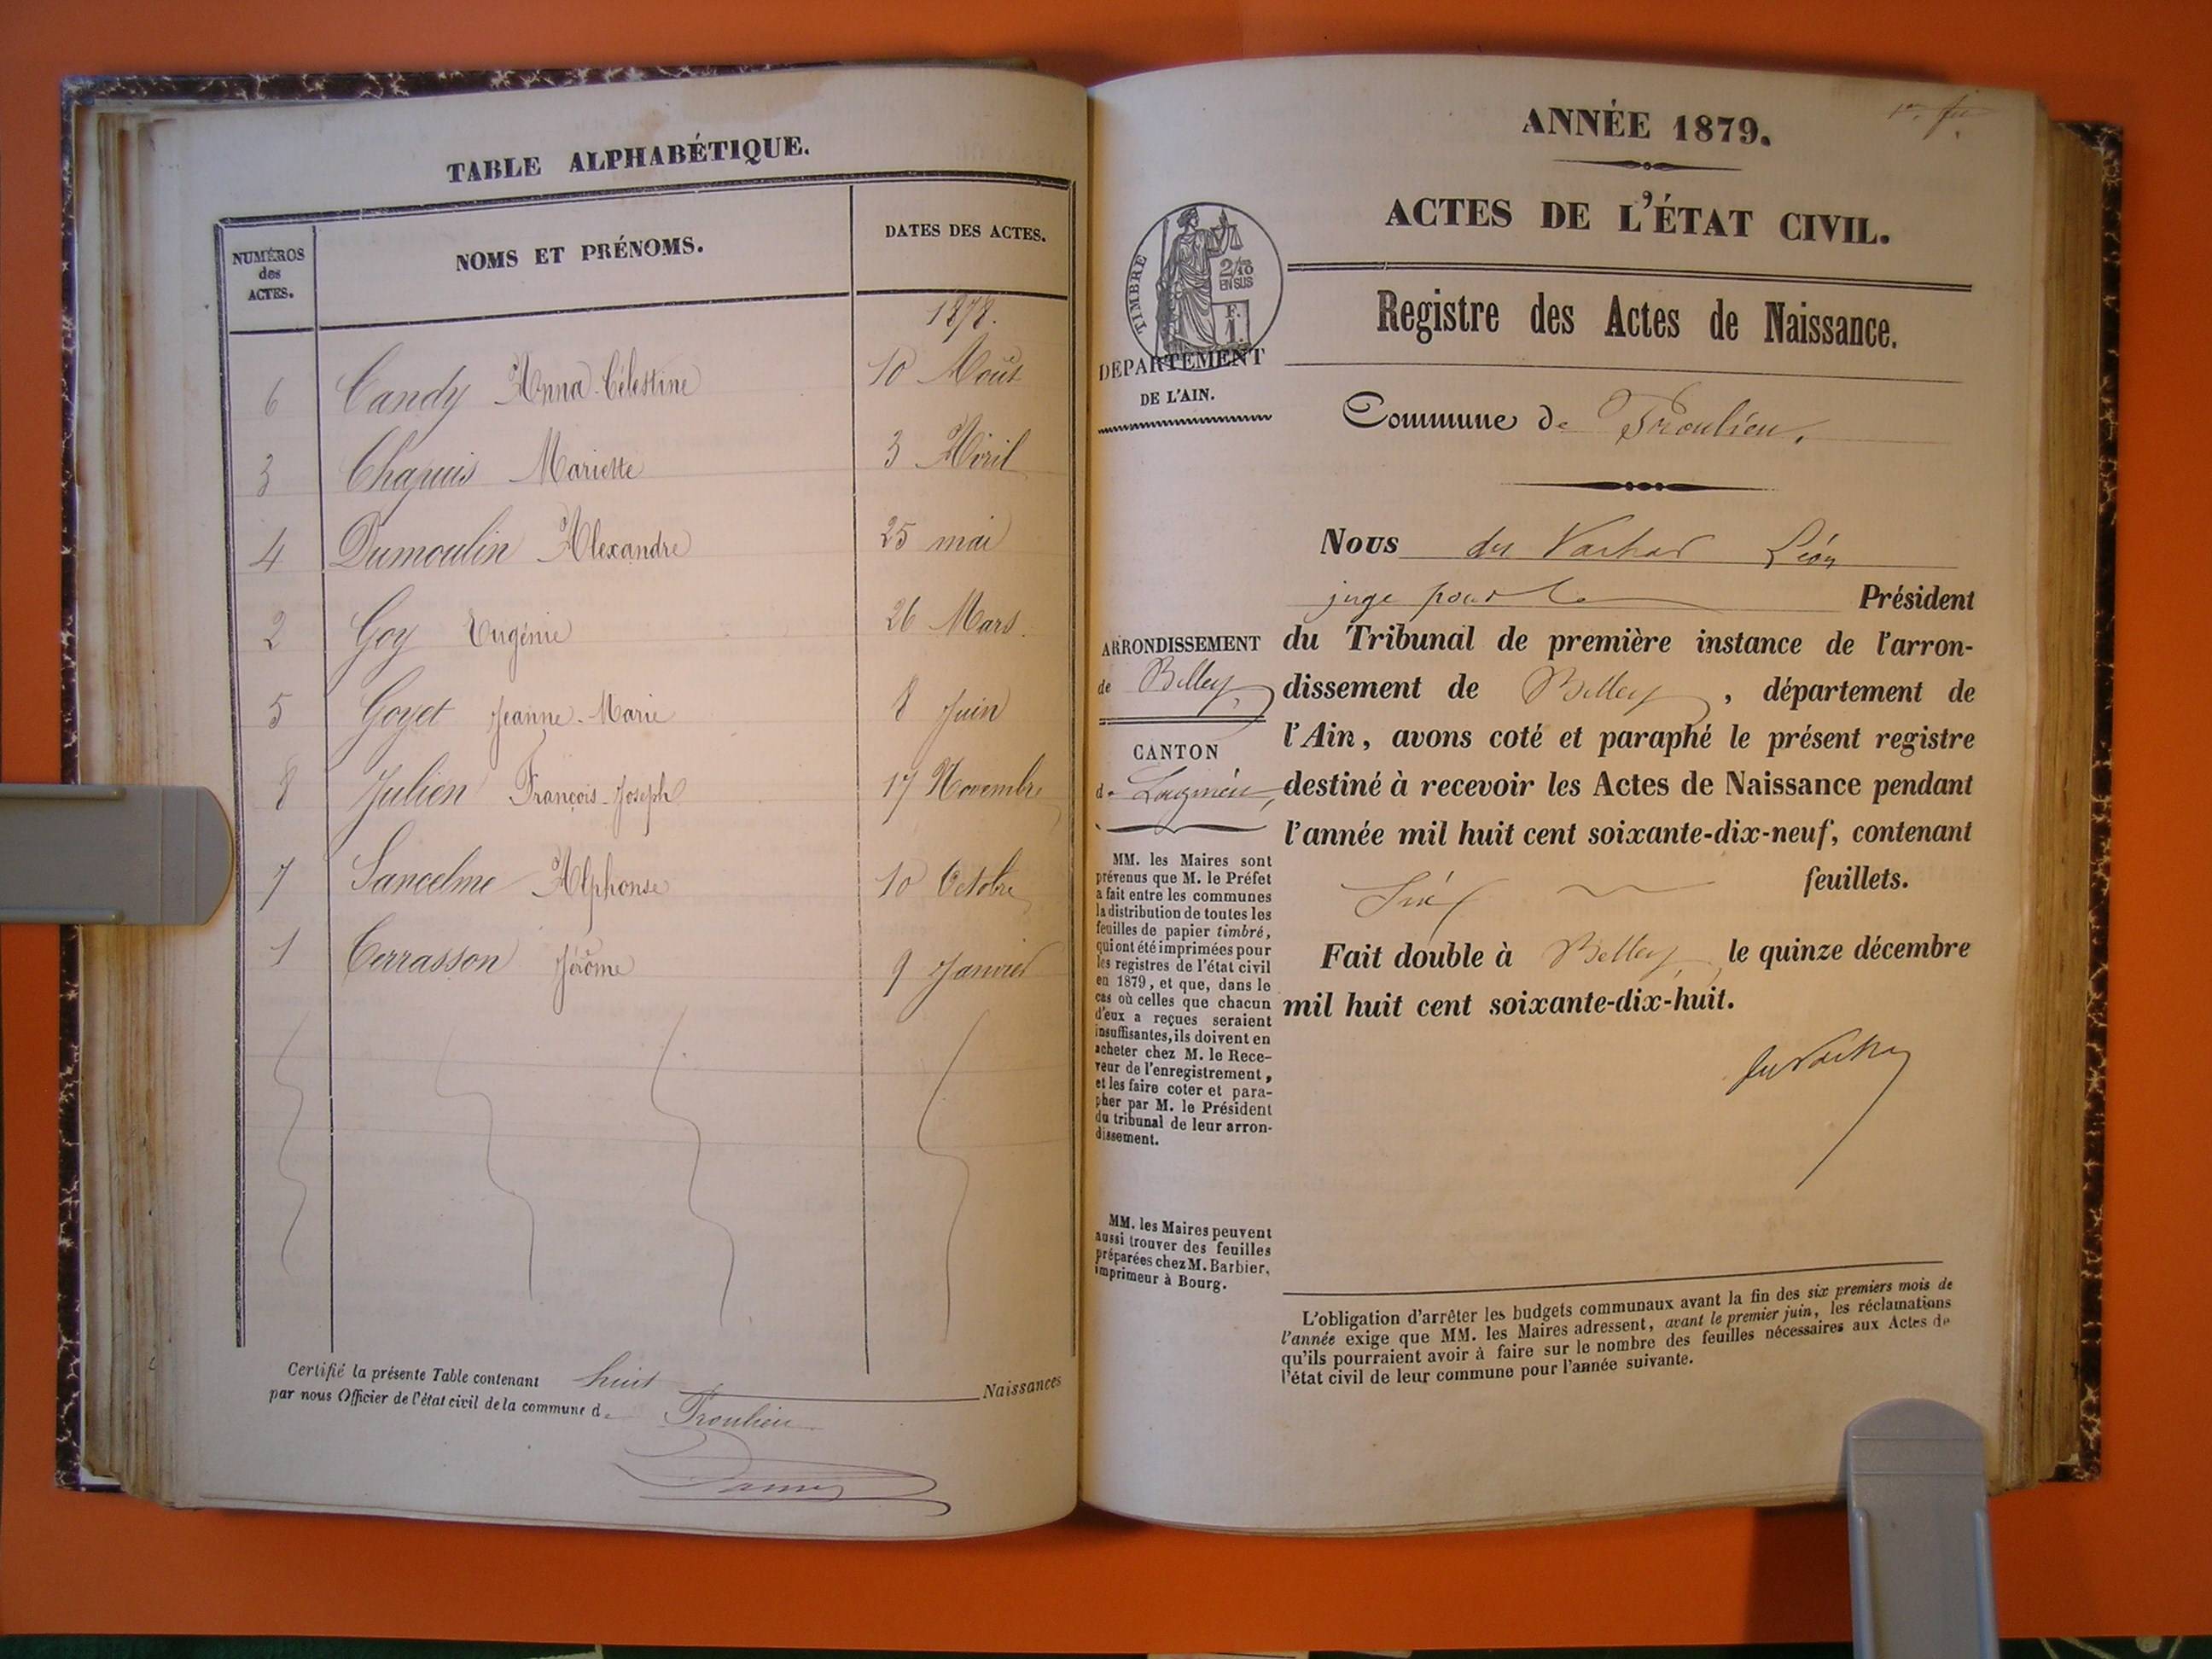 TABLE ALPHABÉTIQUE.
NUMÉROS des ACTES. NOMS ET PRÉNOMS. DATES DES ACTES.
1878.
6 Candy Anna-Célestine 10 Août
3 Chapuis Mariette 3 Avril
4 Dumoulin Alexandre 25 mai
2 Goy Eugénie 26 Mars.
5 Goyet Jeanne-Marie 8 Juin
8 Julien François-Joseph 17 Novembre
7 Sancelme Alphonse 10 Octobre
1 Terrasson Jérôme 9 Janvier
Certifié la présente Table contenant huit Naissances
par nous Officier de l'état civil de la commune de Proulieu
ANNÉE 1879.
ACTES DE L'ÉTAT CIVIL.
TIMBRE
2/10
EN SUS
F.
1.
DÉPARTEMENT
DE L'AIN.
Registre des Actes de Naissance.
Commune de Proulieu.
ARRONDISSEMENT
de Belley,
CANTON
de Lagnieu,
MM. les Maires sont
prévenus que M. le Préfet
a fait entre les communes
la distribution de toutes les
feuilles de papier timbré,
qui ont été imprimées pour
les registres de l'état civil
en 1879, et que, dans le
cas où celles que chacun
d'eux a reçues seraient
insuffisantes, ils doivent en
acheter chez M. le Rece-
veur de l'enregistrement,
et les faire coter et para-
pher par M. le Président
du tribunal de leur arron-
dissement.
MM. les Maires peuvent
aussi trouver des feuilles
préparées chez M. Barbier,
imprimeur à Bourg.
Nous du Vachat Léon
juge pour le Président
du Tribunal de première instance de l'arron-
dissement de Belley, département de
l'Ain, avons coté et paraphé le présent registre
destiné à recevoir les Actes de Naissance pendant
l'année mil huit cent soixante-dix-neuf, contenant
Six feuillets.
Fait double à Belley, le quinze décembre
mil huit cent soixante-dix-huit.
du Vachat
L'obligation d'arrêter les budgets communaux avant la fin des six premiers mois de
l'année exige que MM. les Maires adressent, avant le premier juin, les réclamations
qu'ils pourraient avoir à faire sur le nombre des feuilles nécessaires aux Actes de
l'état civil de leur commune pour l'année suivante.